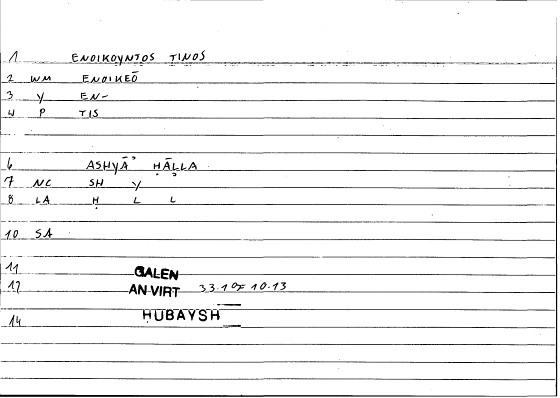 1 ENOIKOYNTOS TINOS
2 WM ENOIKEŌ
3 Y EN-
4 P TIS
6 ASHYĀʾ ḤĀLLA
7 NC SH Y
8 LA Ḥ L L
10 SA
11 GALEN
12 AN VIRT 33.10 10.13
14 ḤUBAYSH